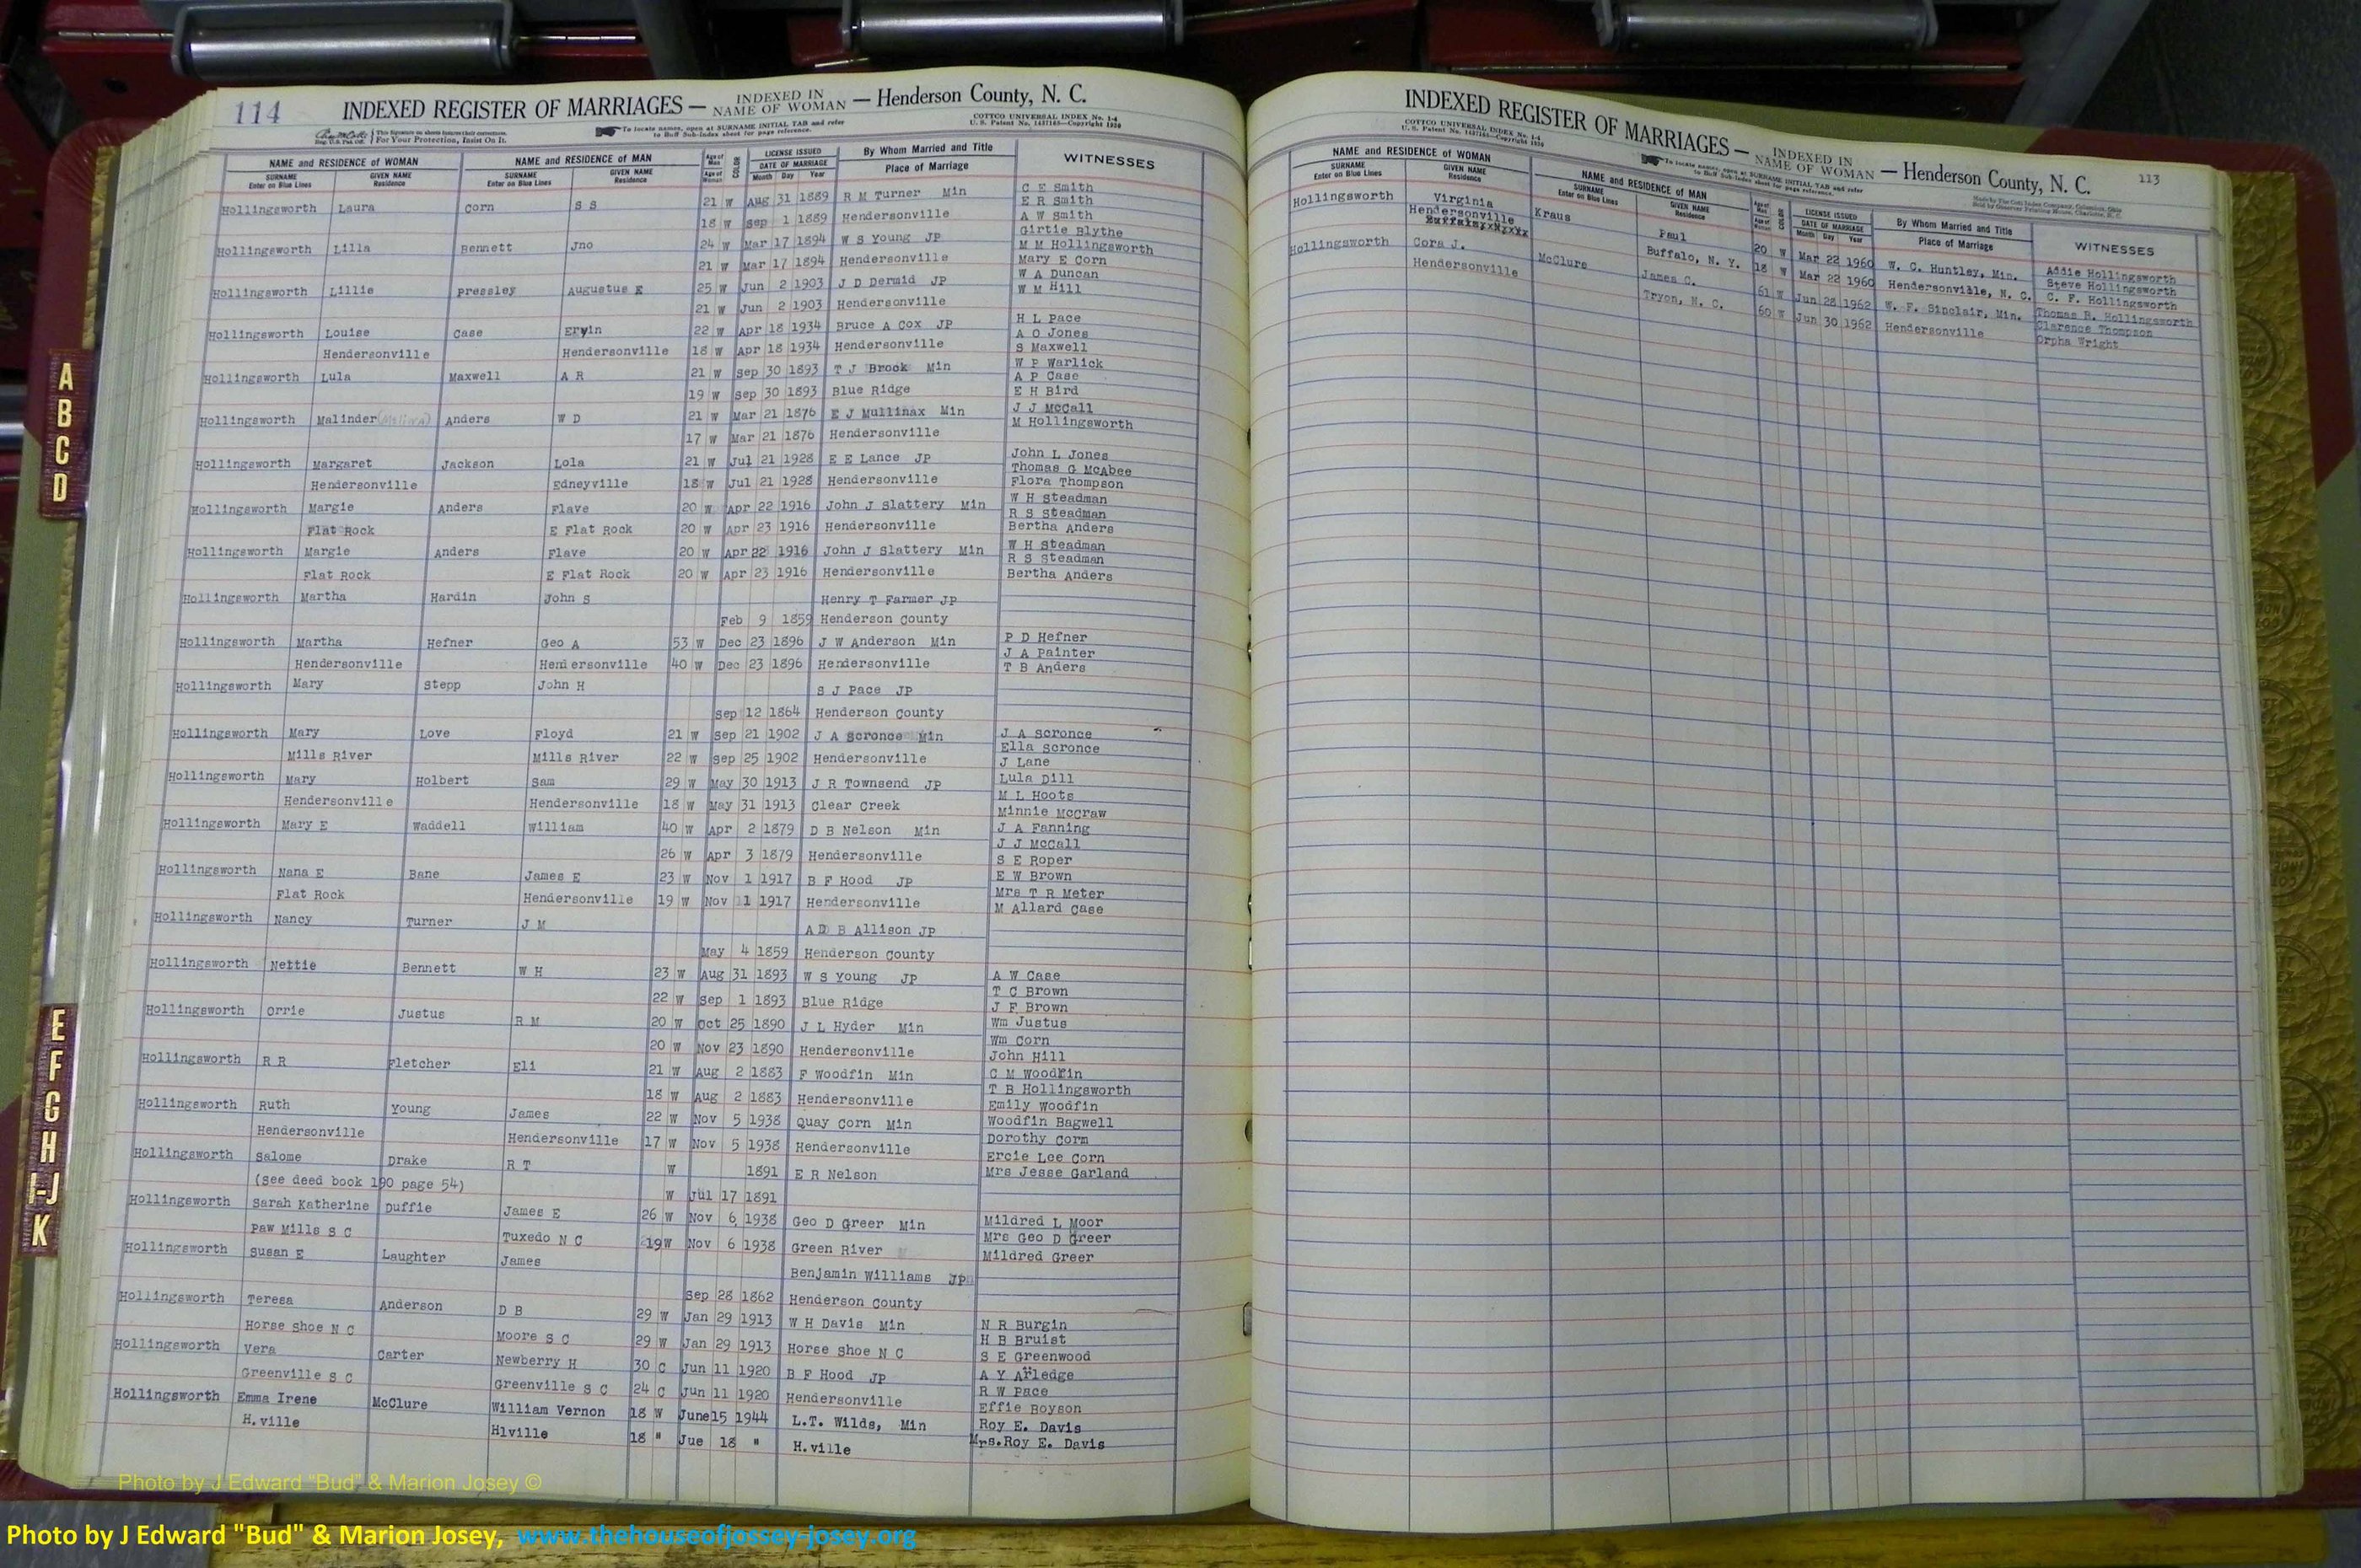 114
INDEXED REGISTER OF MARRIAGES — INDEXED IN NAME OF WOMAN — Henderson County, N. C.
This Signature on sheets insures their correctness.
For Your Protection, Insist On It.
To locate names, open at SURNAME INITIAL TAB and refer
to Buff Sub-Index sheet for page reference.
COTTCO UNIVERSAL INDEX No. 1-4
U. S. Patent No. 1437165—Copyright 1930
NAME and RESIDENCE OF WOMAN NAME and RESIDENCE OF MAN Age of Man COLOR LICENSE ISSUED By Whom Married and Title WITNESSES
SURNAME Enter on Blue Lines GIVEN NAME Residence SURNAME Enter on Blue Lines GIVEN NAME Residence Age of Woman DATE OF MARRIAGE Month Day Year Place of Marriage
Hollingsworth Laura Corn S S 21 W Aug 31 1889 R M Turner Min C E Smith
E R Smith
18 W Sep 1 1889 Hendersonville A W Smith
Hollingsworth Lilla Bennett Jno 24 W Mar 17 1894 W S Young JP Girtie Blythe
M M Hollingsworth
21 W Mar 17 1894 Hendersonville Mary E Corn
Hollingsworth Lillie Pressley Augustus E 25 W Jun 2 1903 J D Dermid JP W A Duncan
W M Hill
21 W Jun 2 1903 Hendersonville
Hollingsworth Louise Case Ervin 22 W Apr 18 1934 Bruce A Cox JP H L Pace
A O Jones
Hendersonville Hendersonville 18 W Apr 18 1934 Hendersonville S Maxwell
Hollingsworth Lula Maxwell A R 21 W Sep 30 1893 T J Brook Min W P Warlick
A P Case
19 W Sep 30 1893 Blue Ridge E H Bird
Hollingsworth Malinder Anders W D 21 W Mar 21 1876 E J Mullinax Min J J McCall
M Hollingsworth
17 W Mar 21 1876 Hendersonville
Hollingsworth Margaret Jackson Lola 21 W Jul 21 1928 E E Lance JP John L Jones
Thomas G McAbee
Hendersonville Edneyville 18 W Jul 21 1928 Hendersonville Flora Thompson
Hollingsworth Margie Anders Flave 20 W Apr 22 1916 John J Slattery Min W H Steadman
R S Steadman
Flat Rock E Flat Rock 20 W Apr 23 1916 Hendersonville Bertha Anders
Hollingsworth Margie Anders Flave 20 W Apr 22 1916 John J Slattery Min W H Steadman
R S Steadman
Flat Rock E Flat Rock 20 W Apr 23 1916 Hendersonville Bertha Anders
Hollingsworth Martha Hardin John S Henry T Farmer JP
Feb 9 1859 Henderson County
Hollingsworth Martha Hefner Geo A 53 W Dec 23 1896 J W Anderson Min P D Hefner
J A Painter
Hendersonville Hendersonville 40 W Dec 23 1896 Hendersonville T B Anders
Hollingsworth Mary Stepp John H S J Pace JP
Sep 12 1864 Henderson County
Hollingsworth Mary Love Floyd 21 W Sep 21 1902 J A Scronce Min J A Scronce
Ella Scronce
Mills River Mills River 22 W Sep 25 1902 Hendersonville J Lane
Hollingsworth Mary Holbert Sam 29 W May 30 1913 J R Townsend JP Lula Dill
M L Hoots
Hendersonville Hendersonville 18 W May 31 1913 Clear Creek Minnie McCraw
Hollingsworth Mary E Waddell William 40 W Apr 2 1879 D B Nelson Min J A Fanning
J J McCall
26 W Apr 3 1879 Hendersonville S E Roper
Hollingsworth Nana E Bane James E 23 W Nov 1 1917 B F Hood JP E W Brown
Mrs T R Meter
Flat Rock Hendersonville 19 W Nov 1 1917 Hendersonville M Allard Case
Hollingsworth Nancy Turner J M A D B Allison JP
May 4 1859 Henderson County
Hollingsworth Nettie Bennett W H 23 W Aug 31 1893 W S Young JP A W Case
T C Brown
22 W Sep 1 1893 Blue Ridge J F Brown
Hollingsworth Orrie Justus R M 20 W Oct 25 1890 J L Hyder Min Wm Justus
Wm Corn
20 W Nov 23 1890 Hendersonville John Hill
Hollingsworth R R Fletcher Eli 21 W Aug 2 1883 F Woodfin Min C M Woodfin
T B Hollingsworth
18 W Aug 2 1883 Hendersonville Emily Woodfin
Hollingsworth Ruth Young James 22 W Nov 5 1938 Quay Corn Min Woodfin Bagwell
Dorothy Corm
Hendersonville Hendersonville 17 W Nov 5 1938 Hendersonville Ercie Lee Corn
Hollingsworth Salome Drake R T W 1891 E R Nelson Mrs Jesse Garland
(See deed book 190 page 54) W Jul 17 1891
Hollingsworth Sarah Katherine Duffie James E 26 W Nov 6 1938 Geo D Greer Min Mildred L Moor
Mrs Geo D Greer
Paw Mills S C Tuxedo N C 19 W Nov 6 1938 Green River Mildred Greer
Hollingsworth Susan E Laughter James Benjamin Williams JP
Sep 28 1862 Henderson County
Hollingsworth Teresa Anderson D B 29 W Jan 29 1913 W H Davis Min N R Burgin
H B Bruist
Horse Shoe N C Moore S C 29 W Jan 29 1913 Horse Shoe N C S E Greenwood
Hollingsworth Vera Carter Newberry H 30 C Jun 11 1920 B F Hood JP A Y Arledge
R W Pace
Greenville S C Greenville S C 24 C Jun 11 1920 Hendersonville Effie Boyson
Hollingsworth Emma Irene McClure William Vernon 18 W June15 1944 L.T. Wilds, Min Roy E. Davis
H.ville Hlville 18 " Jue 18 " H.ville Mrs.Roy E. Davis
INDEXED REGISTER OF MARRIAGES — INDEXED IN NAME OF WOMAN — Henderson County, N. C. 113
COTTCO UNIVERSAL INDEX No. 1-4
U. S. Patent No. 1437165—Copyright 1930
To locate names, open at SURNAME INITIAL TAB and refer
to Buff Sub-Index sheet for page reference.
Made by The Cott Index Company, Columbus, Ohio
Sold by Observer Printing House, Charlotte, N. C.
NAME and RESIDENCE OF WOMAN NAME and RESIDENCE OF MAN Age of Man LICENSE ISSUED By Whom Married and Title WITNESSES
SURNAME Enter on Blue Lines GIVEN NAME Residence SURNAME Enter on Blue Lines GIVEN NAME Residence Age of Woman DATE OF MARRIAGE Month Day Year Place of Marriage
Hollingsworth Virginia Kraus Paul 20 W Mar 22 1960 W. C. Huntley, Min. Addie Hollingsworth
Steve Hollingsworth
Hendersonville Buffalo, N. Y. 18 W Mar 22 1960 Hendersonville, N. C. C. F. Hollingsworth
Hollingsworth Cora J. McClure James C. 61 W Jun 28 1962 W. F. Sinclair, Min. Thomas B. Hollingsworth
Clarence Thompson
Hendersonville Tryon, N. C. 60 W Jun 30 1962 Hendersonville Orpha Wright
A
B
C
D
E
F
G
H
I-J
K
Photo by J Edward "Bud" & Marion Josey ©
Photo by J Edward "Bud" & Marion Josey, www.thehouseofjossey-josey.org